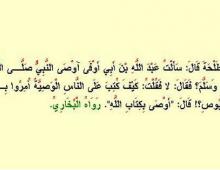 طَلْحَةَ قَالَ: سَأَلْتُ عَبْدَ اللَّهِ بْنَ أَبِي أَوْفَى آوْصَى النَّبِيُّ صَلَّى
وَسَلَّمَ؟ فَقَالَ: لا فَقُلْتُ: كَيْفَ كُتِبَ عَلَى النَّاسِ الْوَصِيَّةُ أُمِرُوا
يُوصِ؟! قَالَ: "أَوْصَى بِكِتَابِ اللَّهِ". رَوَاهُ الْبُخَارِيُّ.